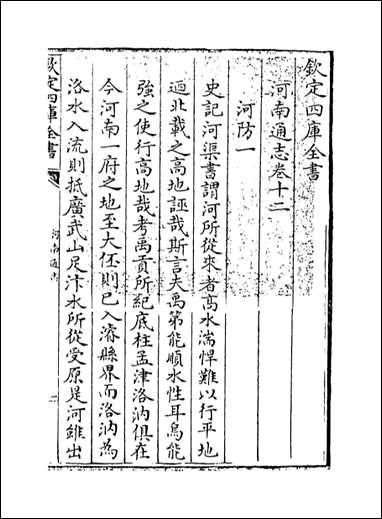 欽定四庫全書
河南通志卷十二
河防一
史記河渠書謂河所從來者高水湍悍難以行平地
迺北載之高地誣哉斯言夫禹第能順水性耳烏能
強之使行高地哉考禹貢所紀底柱孟津洛汭俱在
今河南一府之地至大伾則已入濬縣界而洛汭為
洛水入流則抵廣武山足汴水所從受原是河雖出
欽定四庫全書
河南通志